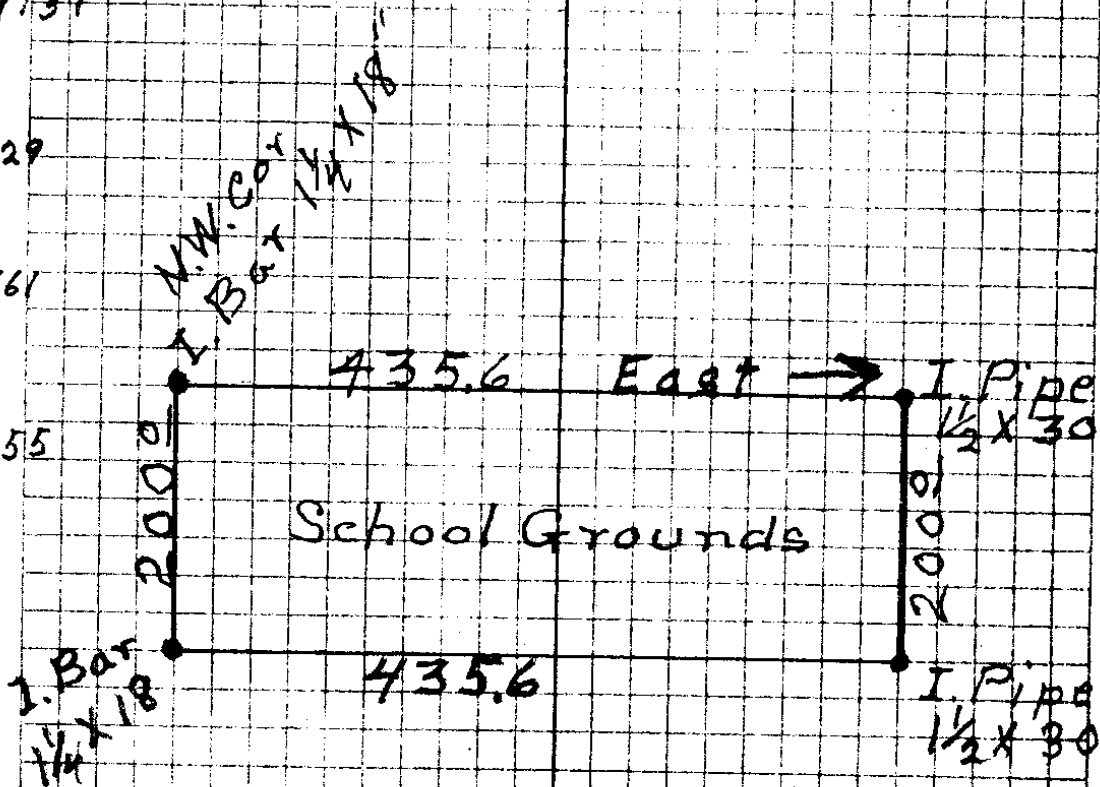 29
N.W. Cor
I. Bar 1 1/4 X 18"
61
435.6 East →
I. Pipe
1 1/2 X 30
55
200 0
School Grounds
200 0
I. Bar
1 1/4 X 18
435.6
I. Pipe
1 1/2 X 30